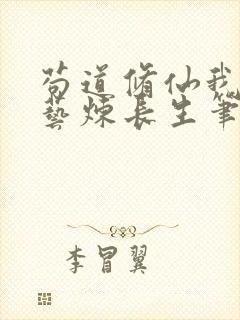 苟道修仙我
藝煉長生筆
李冒翼